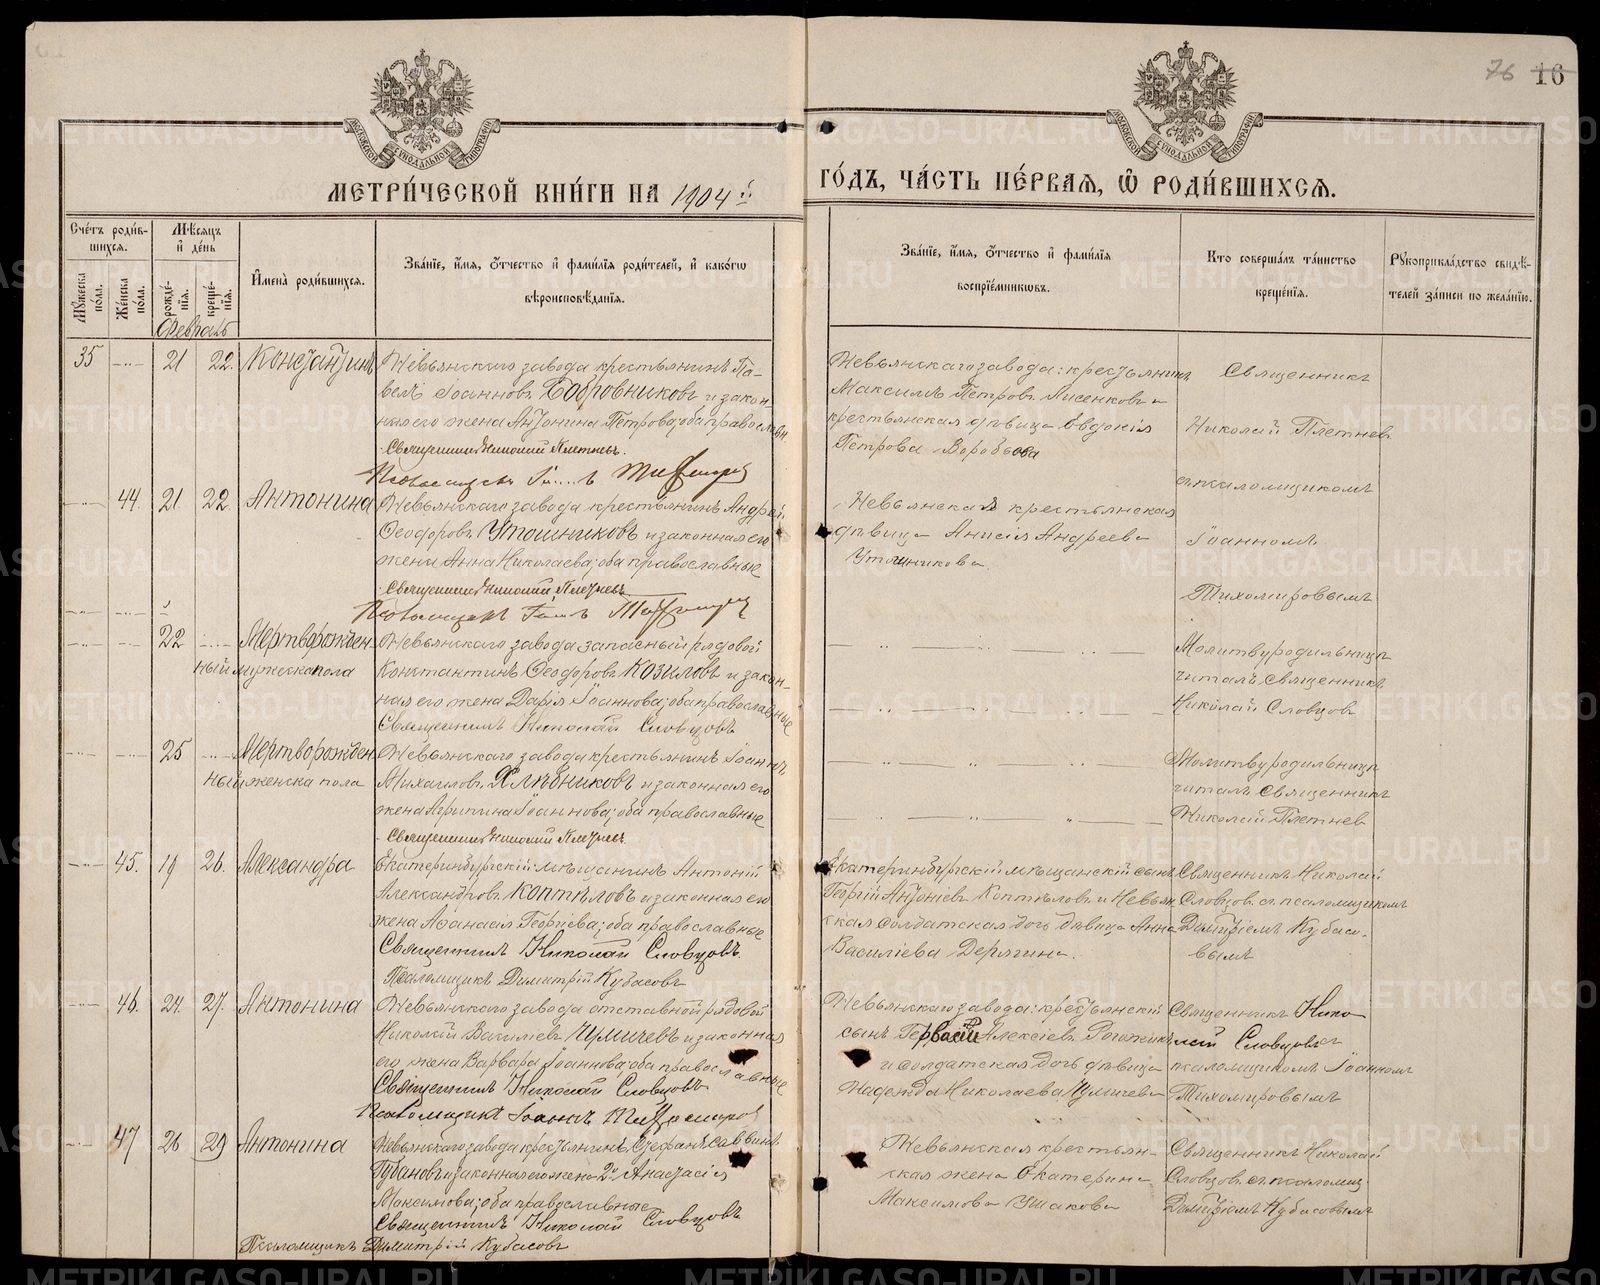 76 16
МОСКОВСКОЙ СѴНОДАЛЬНОЙ ТИПОГРАФІИ
МОСКОВСКОЙ СѴНОДАЛЬНОЙ ТИПОГРАФІИ
МЕТРИ́ЧЕСКОЙ КНИ́ГИ НА 1904й
ГО́ДЪ, ЧА́СТЬ ПЕ́РВАѦ, Ѡ҆ РОДИ́ВШИХСѦ.
Сче́тъ роди́в-
шихсѧ.
Мꙋ́жеска по́ла.
Же́нска по́ла.
Мѣ́сѧцъ
и҆ де́нь
рожде́-
нїѧ.
креще́-
нїѧ.
Февраль
И҆мена̀ роди́вшихсѧ.
Зва́нїе, и҆́мѧ, ѻ҆́тчество и҆ фами́лїѧ роди́телей, и҆ како́гѡ
вѣроисповѣ́данїѧ.
Зва́нїе, и҆́мѧ, ѻ҆́тчество и҆ фами́лїѧ
воспрїе́мникѡвъ.
Кто соверша́лъ та́инство
креще́нїѧ.
Рꙋкоприкла́дство свидѣ́-
телей за́писи по жела́нїю.
35 21 22. Константинъ
Невьянскаго завода крестьянинъ Па-
велъ Іоанновъ Бобровниковъ и закон-
ная его жена Антонина Петрова; оба православн.
Священникъ Николай Плетневъ.
Невьянскаго завода: крестьянинъ
Максимъ Петровъ Лисенковъ и
крестьянская дѣвица Евдокія
Петрова Воробьова
Священникъ
Николай Плетневъ
съ псаломщикомъ
Іоанномъ
Тихомировымъ
44. 21 22 Антонина
Невьянскаго завода крестьянинъ Андрей
Ѳеодоровъ Утошниковъ и законная его
жена Анна Николаева; оба православные
Священникъ Николай Плетневъ
Невьянская крестьянская
дѣвица Анисія Андреева
Утошникова.
22 Мертворожден-
ный мужеска пола
Невьянскаго завода запасный рядовой
Константинъ Ѳеодоровъ Козиловъ и закон-
ная его жена Дарія Іоаннова; оба православные
Священникъ Николай Словцовъ
Молитву родильницѣ
читалъ священникъ
Николай Словцовъ
25 Мертворожден-
ный женска пола
Невьянскаго завода крестьянинъ Іоаннъ
Михаиловъ Хлѣбниковъ и законная его
жена Агрипина Іоаннова; оба православные
Священникъ Николай Плетневъ.
Молитву родильницѣ
читалъ священникъ
Николай Плетнев
45. 19 26. Александра
Екатеринбургскій мѣщанинъ Антоній
Александровъ Коптѣловъ и законная его
жена Аѳанасія Георгіева; оба православные
Священникъ Николай Словцовъ.
Псаломщикъ Димитрій Кубасовъ
Екатеринбургскій мѣщанскій сынъ
Георгій Антоніевъ Коптѣловъ и Невьян
ская солдатская дочь дѣвица Анна
Василіева Дерягина.
Священникъ Николай
Словцовъ съ псаломщикомъ
Димитріемъ Кубасо-
вымъ
46. 24. 27. Антонина
Невьянскаго завода отставной рядовой
Николай Василіевъ Чумичевъ и законная
его жена Варвара Іоаннова; оба православные
Священникъ Николай Словцовъ
Псаломщикъ Іоаннъ Тихомировъ
Невьянскаго завода: крестьянскій
сынъ Гервасій Алексіевъ
и солдатская дочь дѣвица
Надежда Николаева Чумичева
Священникъ Нико-
лай Словцовъ съ
псаломщикомъ Іоанномъ
Тихомировымъ
47 26 29 Антонина
Невьянскаго завода крестьянинъ Стефанъ Саввинъ
Губановъ и законная его жена 2я Анастасія
Максимова; оба православные
Священникъ Николай Словцовъ
Псаломщикъ Димитрій Кубасовъ
Невьянская крестьян-
ская жена Екатерина
Максимова Ушакова
Священникъ Николай
Словцовъ съ псаломщ.
Димитріемъ Кубасовымъ
METRIKI.GASO-URAL.RU